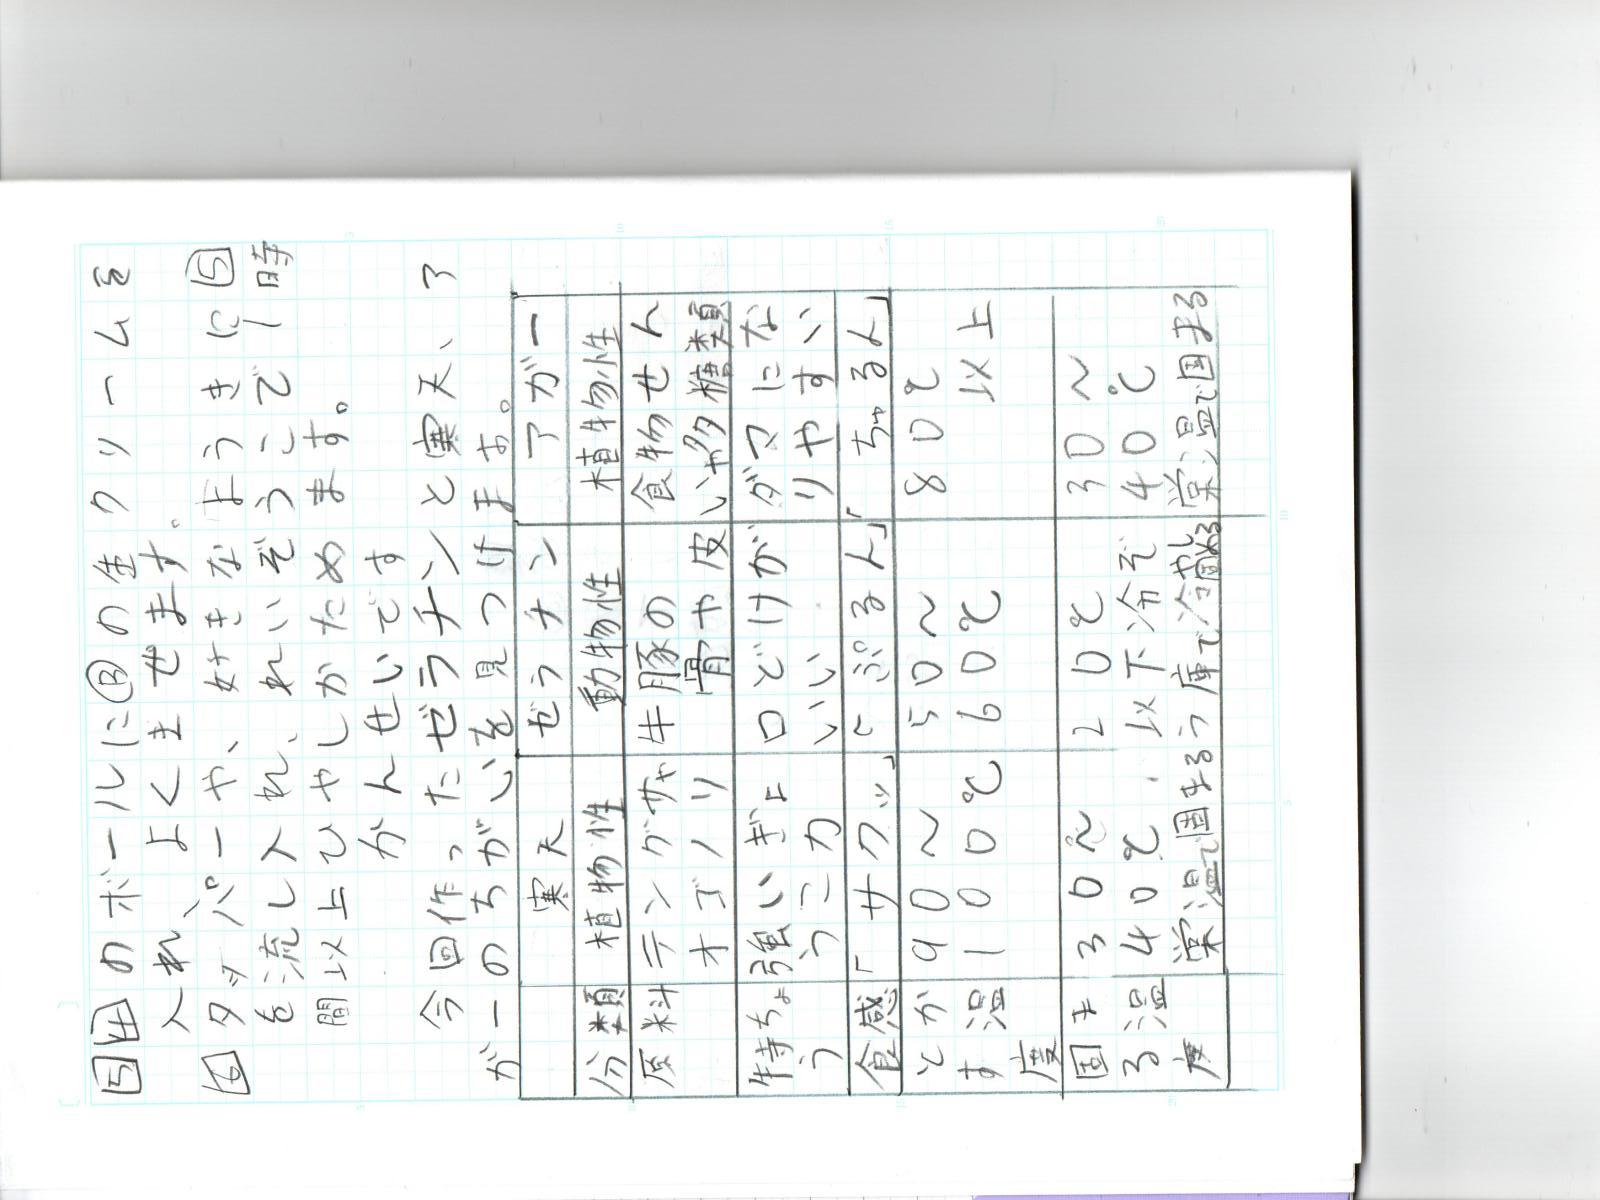 5 4のボールにBの生クリームを
入れ、よくまぜます。
6 タッパーや、好きなようきに5
を流し入れ、れいぞうこで1時
間以上ひやしかためます。
かんせいです
今回作ったゼラチンと寒天、ア
ガーのちがいを見つけます。
寒天 ゼラチン アガー
分類 植物性 動物性 植物性
原料 テングサや 牛豚の 食物せん
オゴノリ 骨や皮 いや多糖類
特ちょ 強いぎょ 口どけが ダマにな
う うこ力 いい りやすい
食感 「サクッ」 「ぷるん」 「ちゅるん」
とか 90～ 50～ 80℃
す温 100℃ 60℃ 以上
度
固ま 30～ 20℃ 30～
る温 40℃ 以下冷ぞ 40℃
度 常温で固まる う庫で冷やし固める 常温で固まる